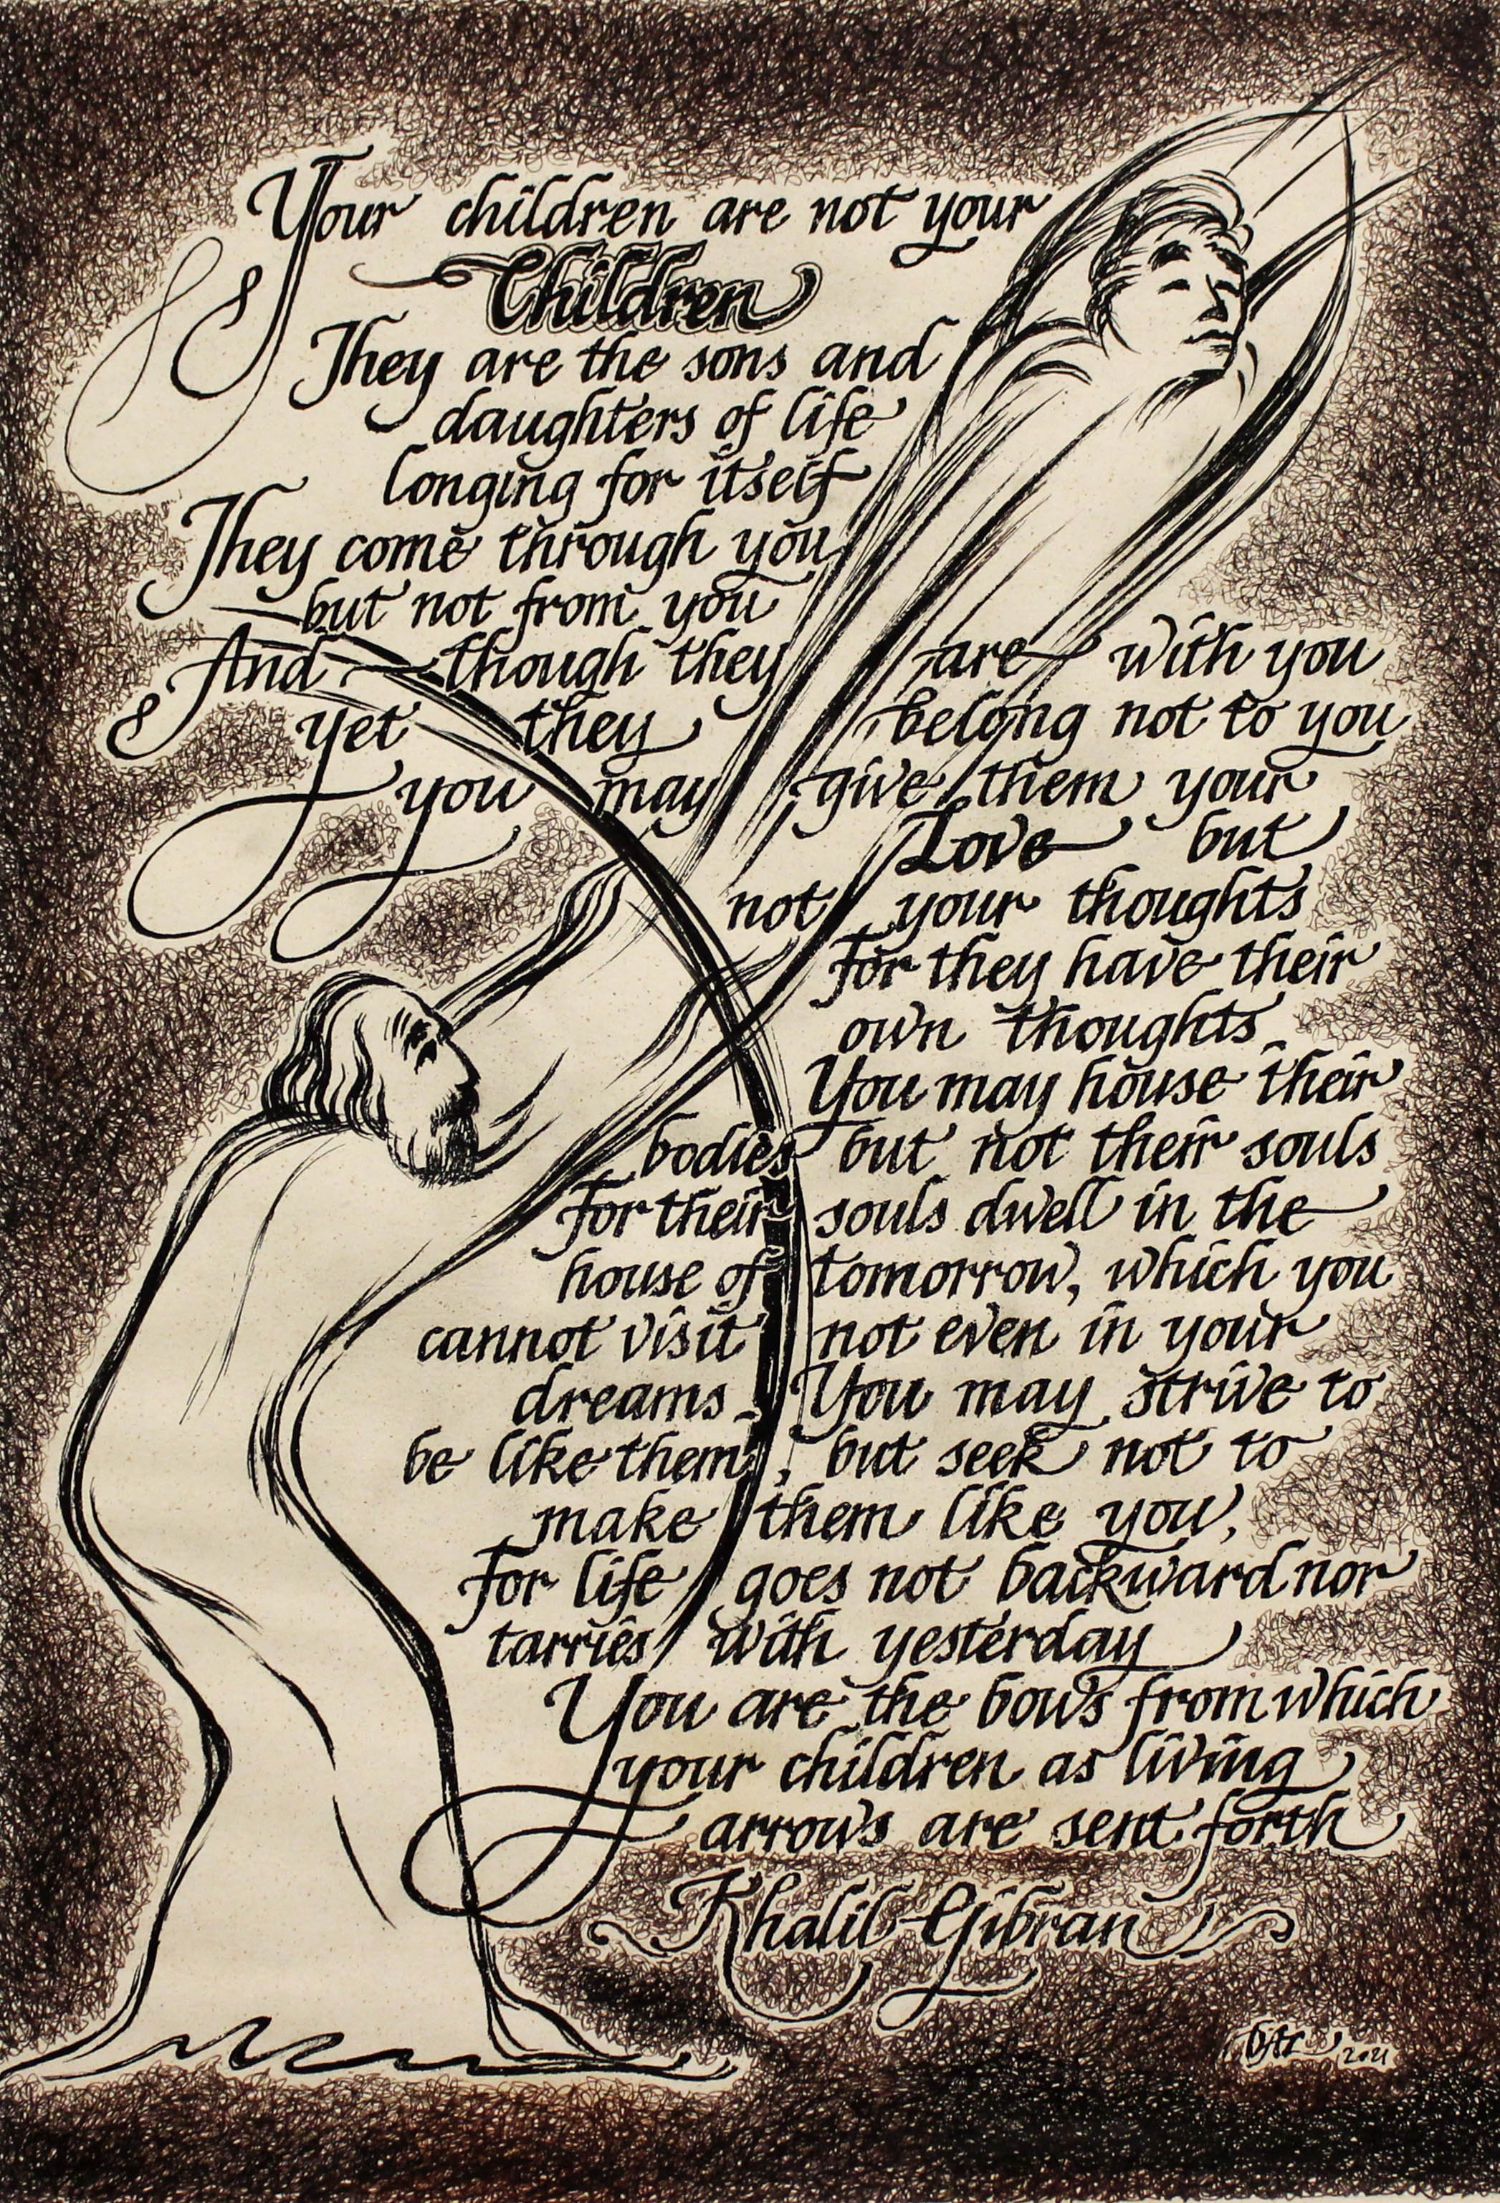 Your children are not your
Children
They are the sons and
daughters of life
longing for itself
They come through you
but not from you
And though they are with you
yet they belong not to you
you may give them your
Love but
not your thoughts
For they have their
own thoughts
You may house their
bodies but not their souls
For their souls dwell in the
house of tomorrow, which you
cannot visit not even in your
dreams You may strive to
be like them, but seek not to
make them like you,
For life goes not backward nor
tarries with yesterday
You are the bows from which
your children as living
arrows are sent forth
Khalil Gibran
2021